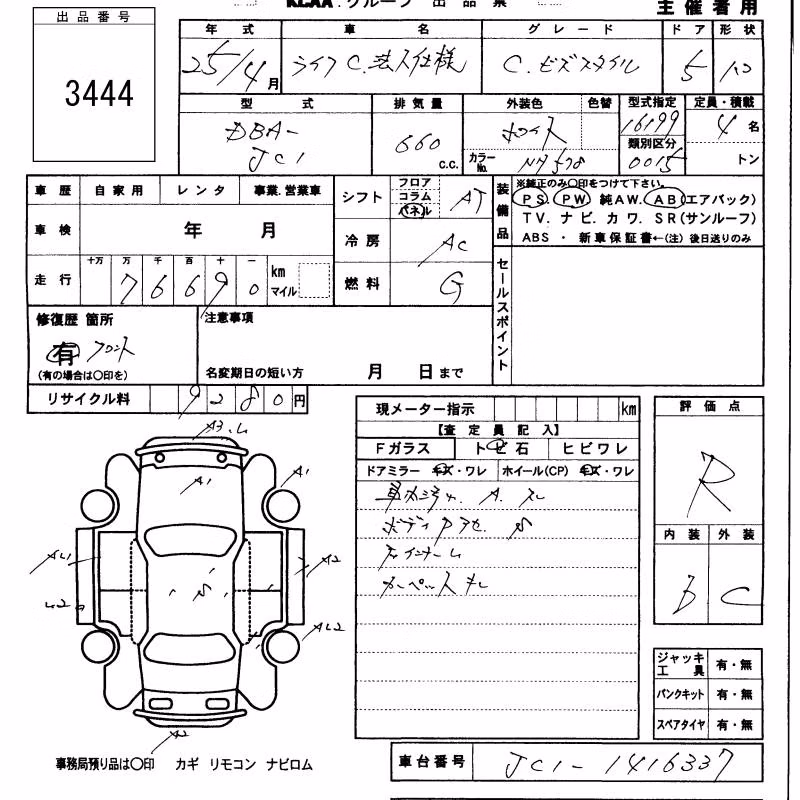 KCAA.グループ 出品票
主催者用
出品番号
3444
年式 車名 グレード ドア 形状
25/4月 ライフ C. 芸人仕様 C. ビズスタイル 5 ハコ
型式 排気量 外装色 色替 型式指定 定員・積載
DBA- JC1 660 c.c. ホワイト 16199 4名
カラーNo. NH578 類別区分 0015 トン
車歴 自家用 レンタ 事業.営業車
車検 年 月
走行 十万 万 千 百 十 一 km マイル
7 6 6 9 0
シフト フロア コラム パネル AT
冷房 AC
燃料 G
装備品
※純正のみ〇印をつけて下さい。
PS. PW. 純AW. AB(エアバック)
TV. ナビ. カワ. SR(サンルーフ)
ABS ・ 新車保証書←(注) 後日送りのみ
セールスポイント
修復歴 箇所
有 フロント
(有の場合は〇印を)
注意事項
名変期日の短い方 月 日まで
リサイクル料 9280円
現メーター指示 km
【査定員記入】
Fガラス トビ石 ヒビワレ
ドアミラー キズ・ワレ ホイール(CP) キズ・ワレ
A. スレ
カーペット キレ
評価点
R
内装 外装
B C
A3.レ
A1
A1
A2
A2
ジャッキ工具 有・無
パンクキット 有・無
スペアタイヤ 有・無
事務局預り品は〇印 カギ リモコン ナビロム
車台番号 JC1-1416337